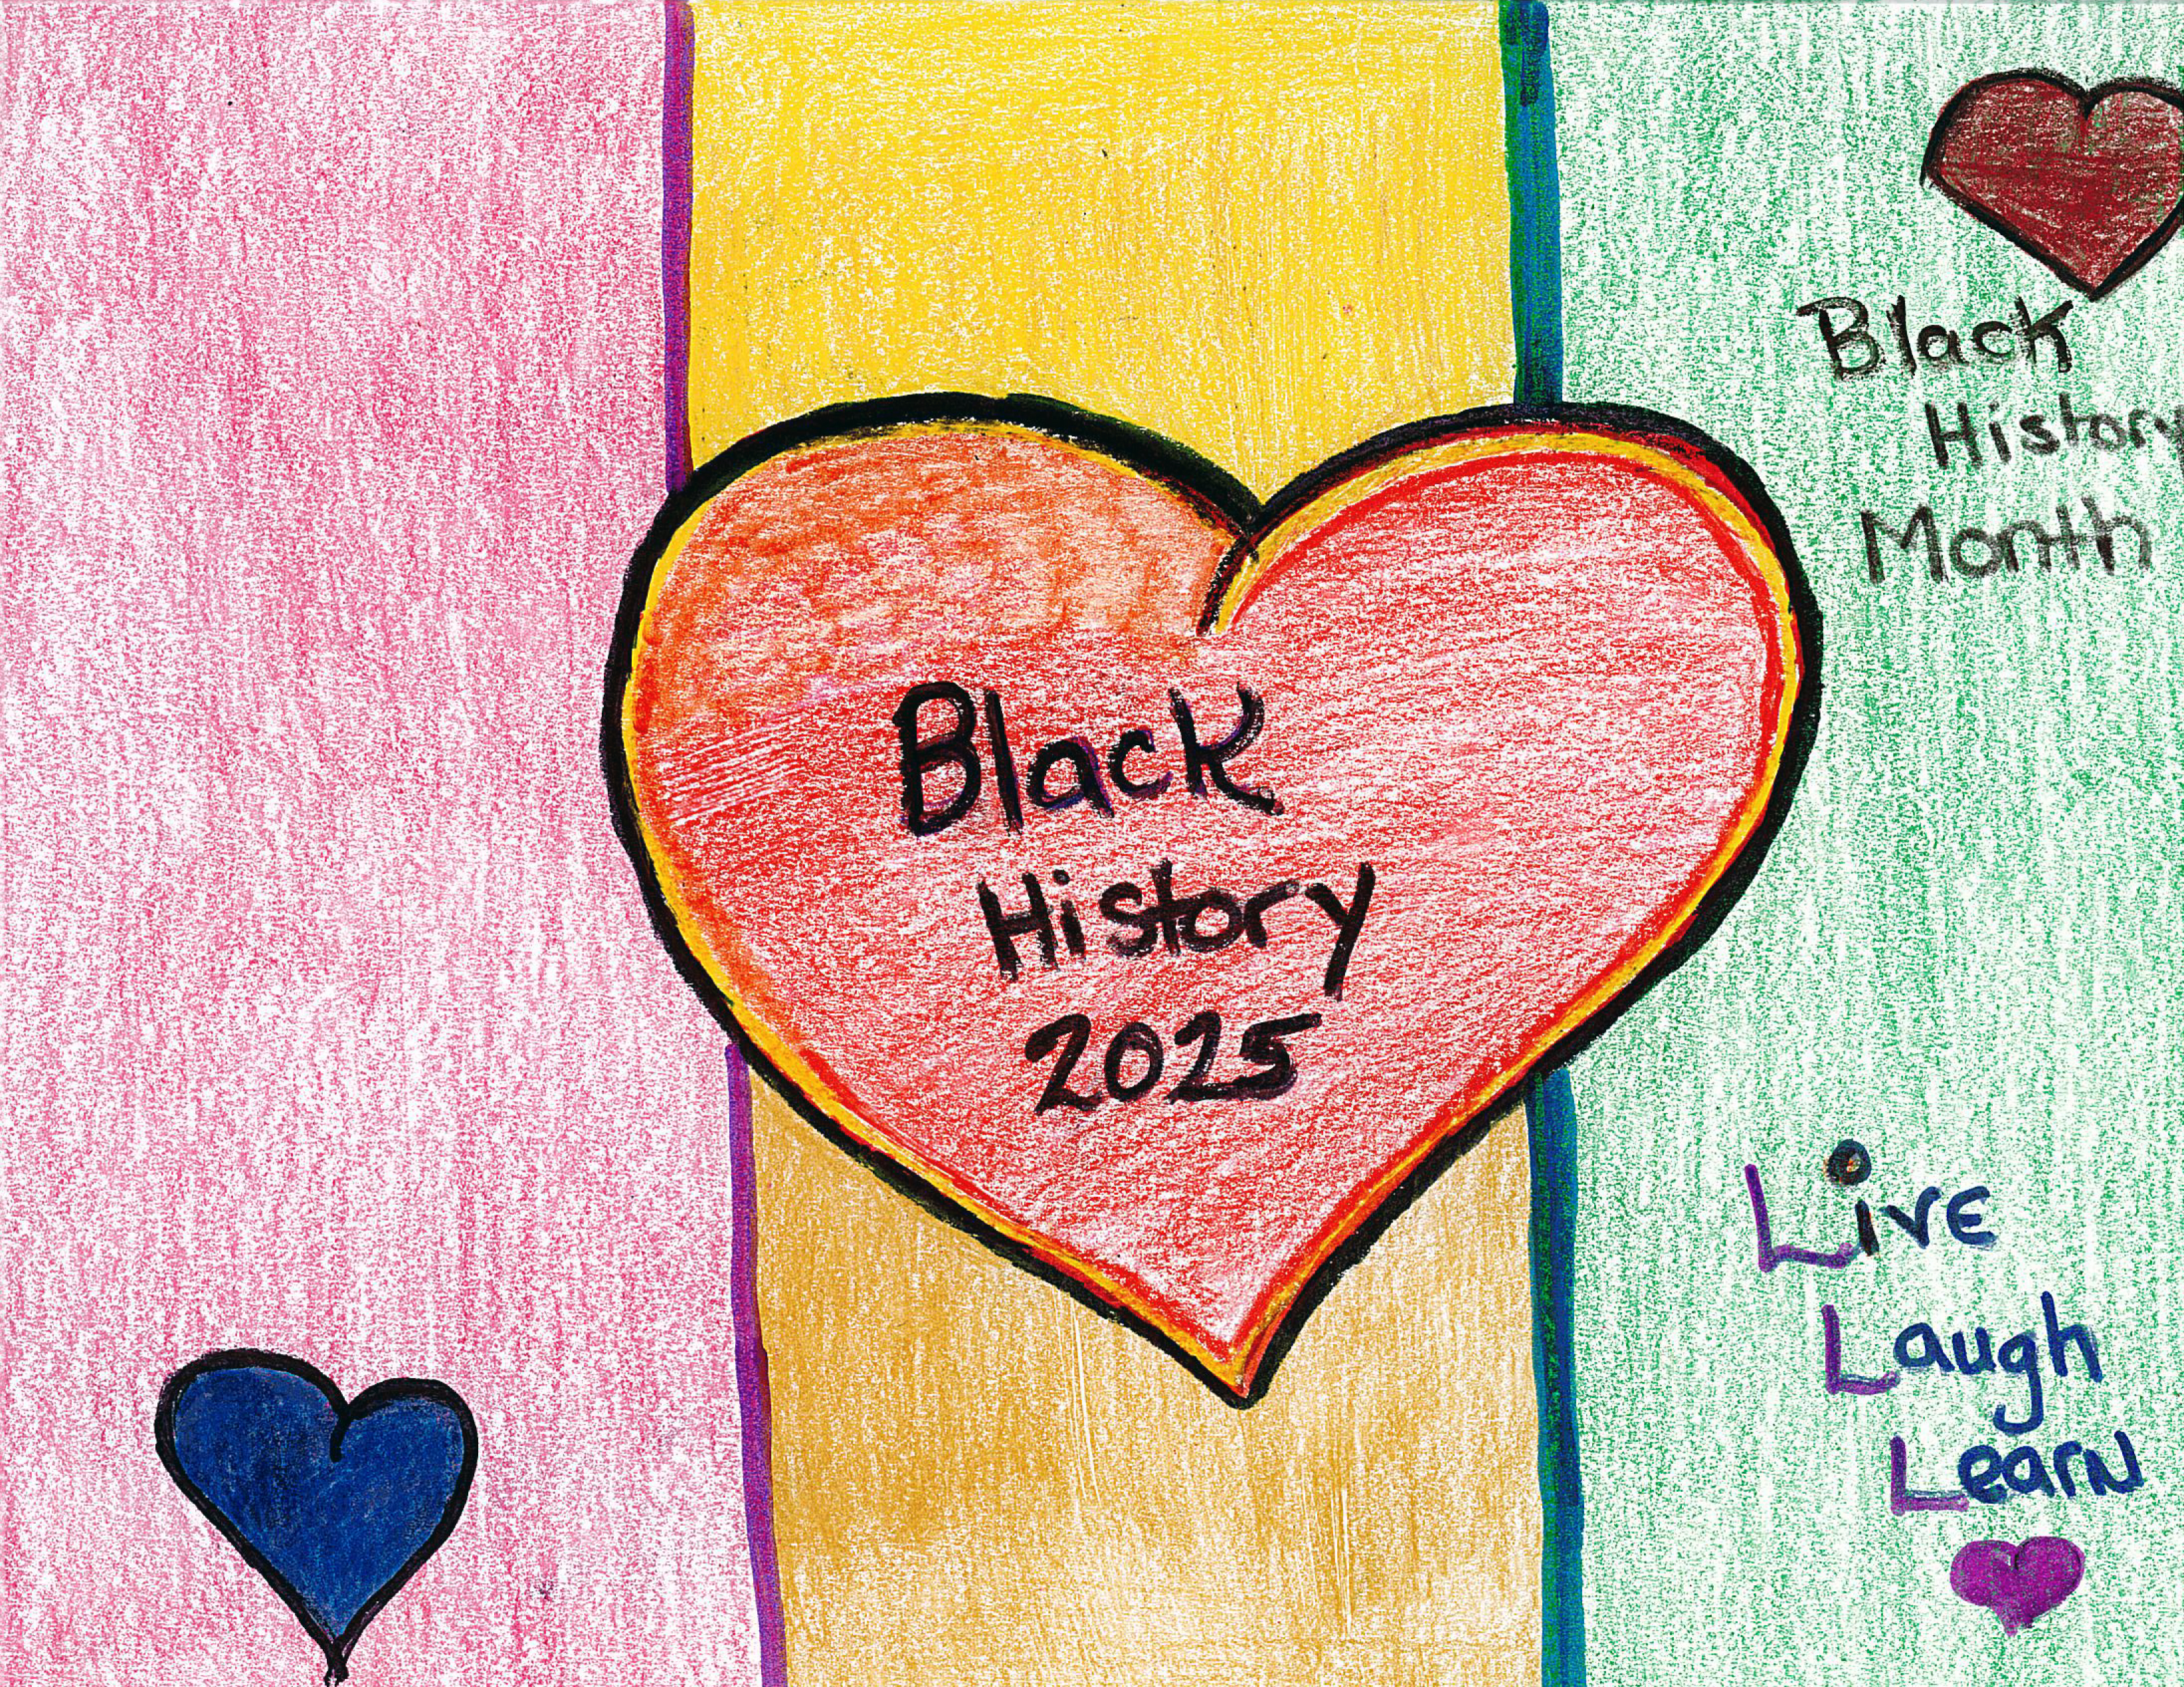 Black
History
2025
Black
History
Month
Live
Laugh
Learn